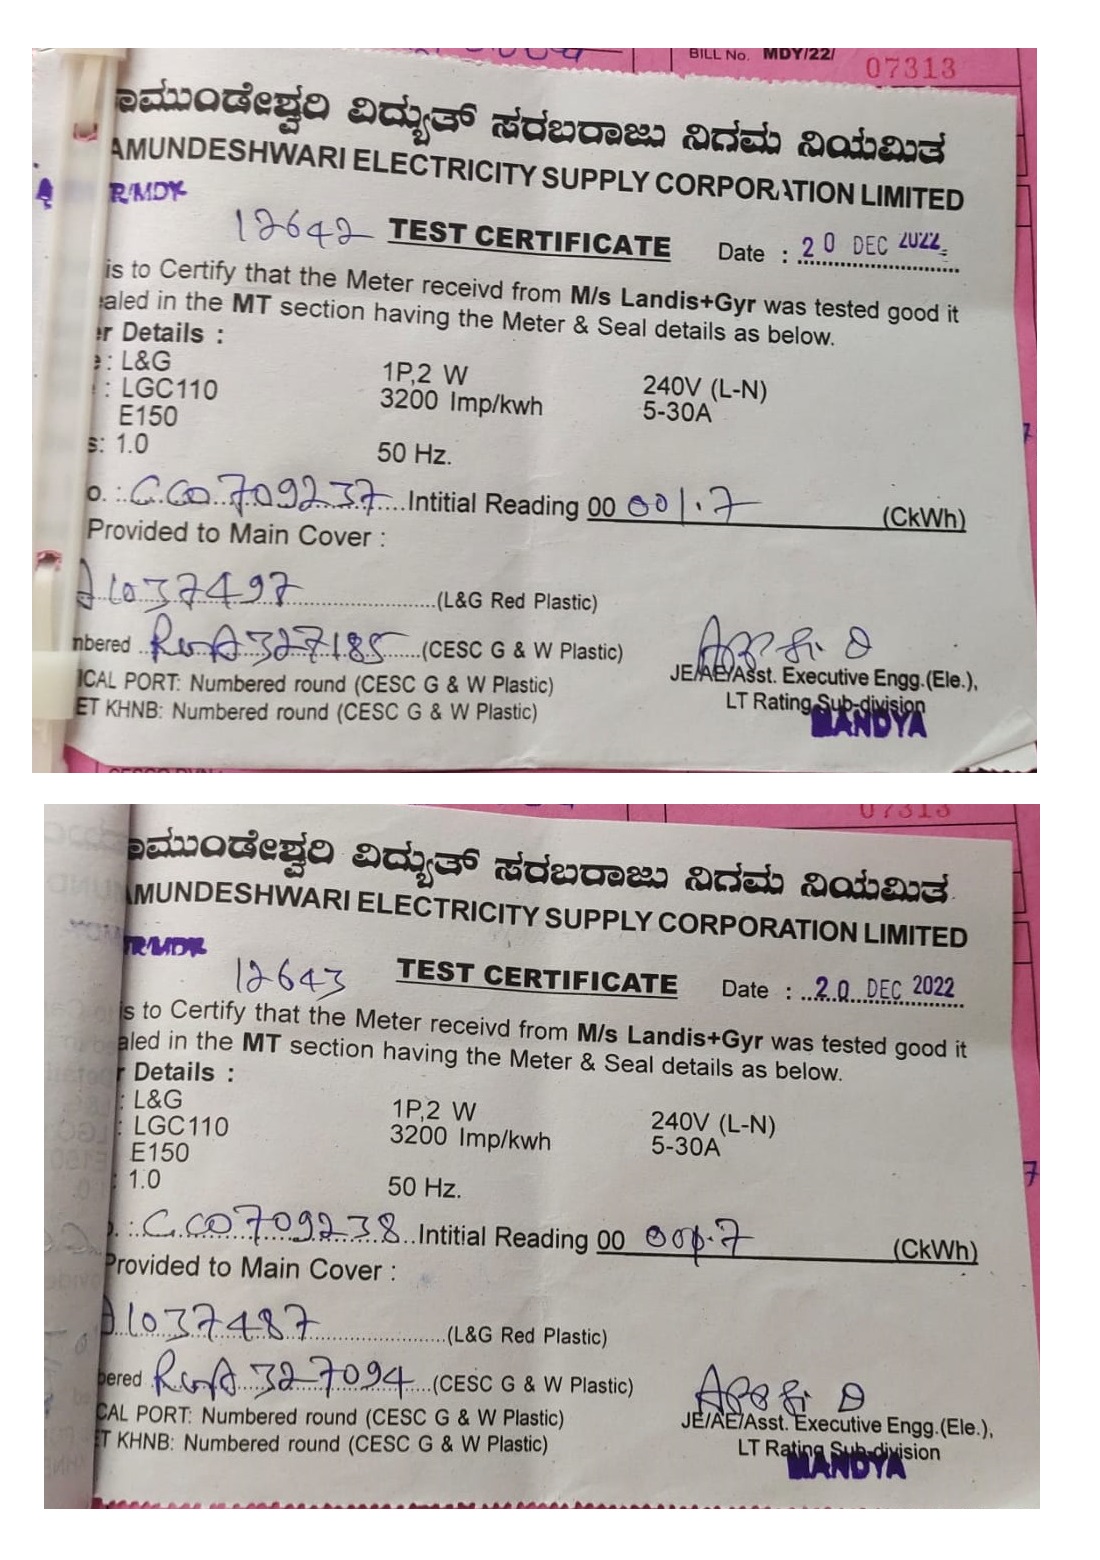 BILL No. MDY/22/ 07313
ಾಮುಂಡೇಶ್ವರಿ ವಿದ್ಯುತ್ ಸರಬರಾಜು ನಿಗಮ ನಿಯಮಿತ
AMUNDESHWARI ELECTRICITY SUPPLY CORPORATION LIMITED
R/MDY
12642 TEST CERTIFICATE Date : 20 DEC 2022
is to Certify that the Meter receivd from M/s Landis+Gyr was tested good it
aled in the MT section having the Meter & Seal details as below.
r Details :
: L&G 1P,2 W 240V (L-N)
: LGC110 3200 Imp/kwh 5-30A
E150
s: 1.0 50 Hz.
o. : CC0709237 Intitial Reading 00 001.7 (CkWh)
Provided to Main Cover :
A1037497 (L&G Red Plastic)
nbered 327185 (CESC G & W Plastic)
JE/AE/Asst. Executive Engg.(Ele.),
ICAL PORT: Numbered round (CESC G & W Plastic)
LT Rating Sub-division
ET KHNB: Numbered round (CESC G & W Plastic)
MANDYA
07313
ಾಮುಂಡೇಶ್ವರಿ ವಿದ್ಯುತ್ ಸರಬರಾಜು ನಿಗಮ ನಿಯಮಿತ
AMUNDESHWARI ELECTRICITY SUPPLY CORPORATION LIMITED
TR/MDY
12643 TEST CERTIFICATE Date : 20 DEC 2022
s to Certify that the Meter receivd from M/s Landis+Gyr was tested good it
aled in the MT section having the Meter & Seal details as below.
r Details :
: L&G 1P,2 W 240V (L-N)
: LGC110 3200 Imp/kwh 5-30A
E150
: 1.0 50 Hz.
. : CC0709238 Intitial Reading 00 001.7 (CkWh)
Provided to Main Cover :
A1037487 (L&G Red Plastic)
bered 327094 (CESC G & W Plastic)
CAL PORT: Numbered round (CESC G & W Plastic)
JE/AE/Asst. Executive Engg.(Ele.),
T KHNB: Numbered round (CESC G & W Plastic)
LT Rating Sub-division
MANDYA